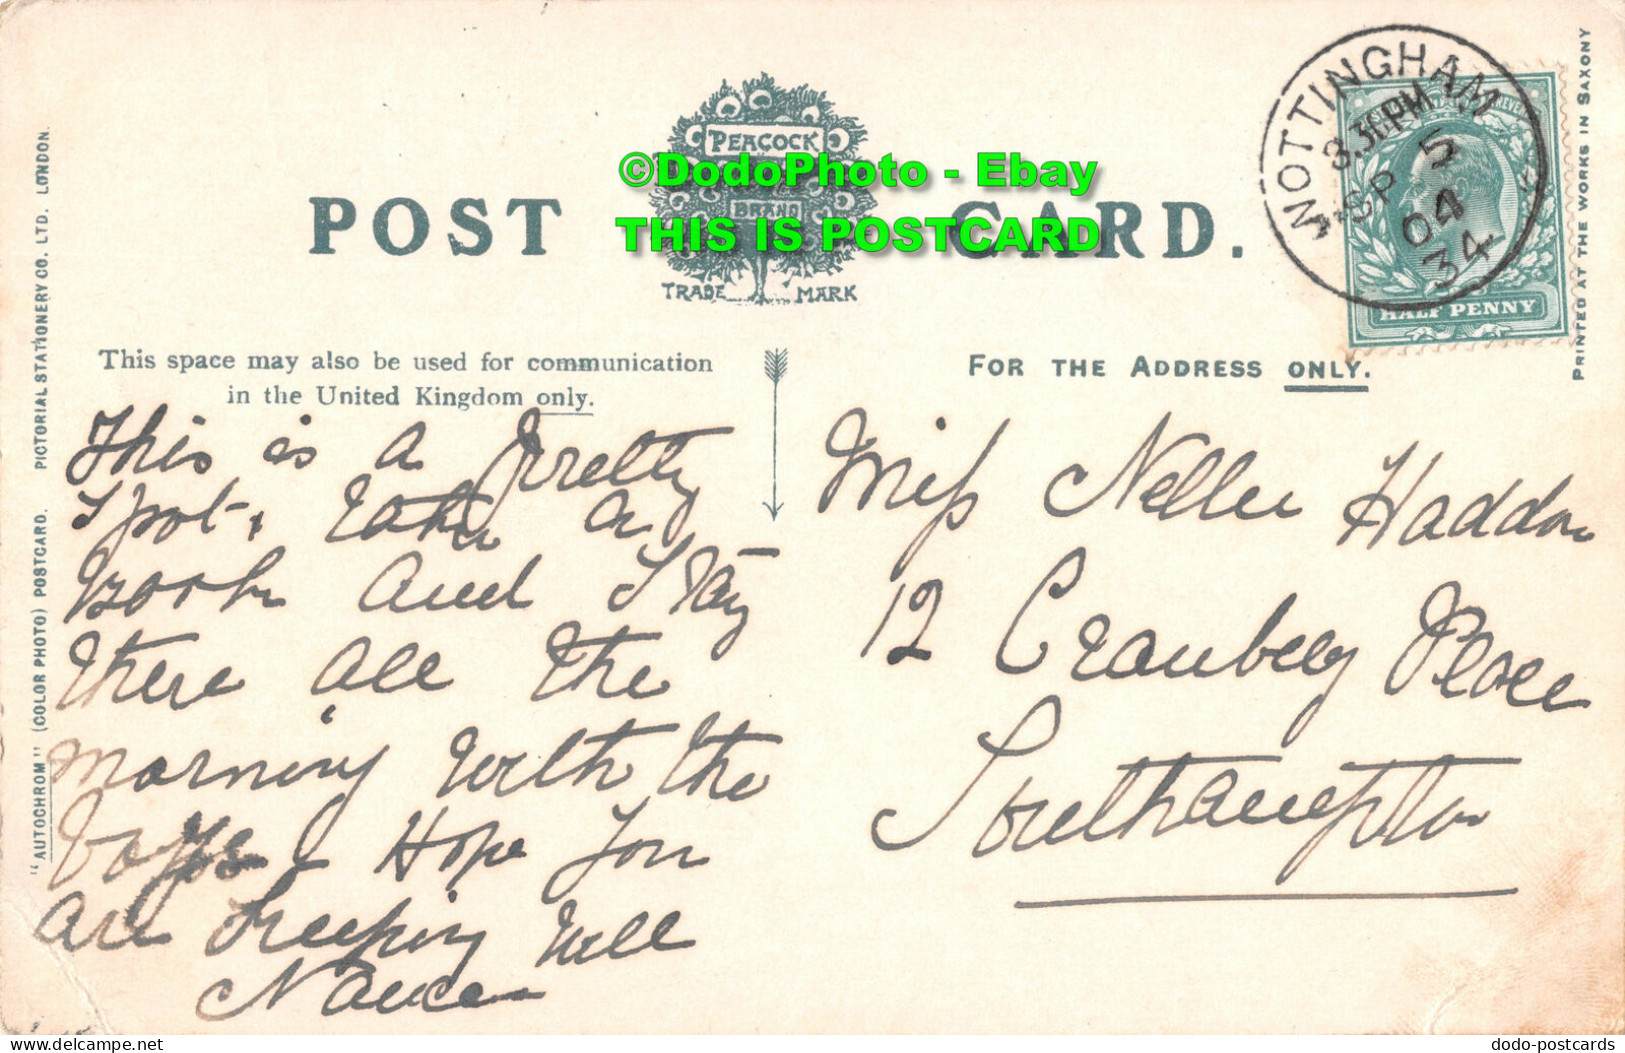 NOTTINGHAM
8.30PM
SP 5
04
34
HALF PENNY
PEACOCK
BRAND
TRADE MARK
POST CARD.
©DodoPhoto - Ebay
THIS IS POSTCARD
This space may also be used for communication
in the United Kingdom only.
FOR THE ADDRESS ONLY.
This is a pretty
Spot, take a
Book and Stay
there all the
morning with the
boys I Hope you
are keeping well
Miss Nellie Haddon
12 Cranbery Place
Southampton
"AUTOCHROM" (COLOR PHOTO) POSTCARD. PICTORIAL STATIONERY CO. LTD. LONDON.
PRINTED AT THE WORKS IN SAXONY
delcampe.net
dodo-postcards